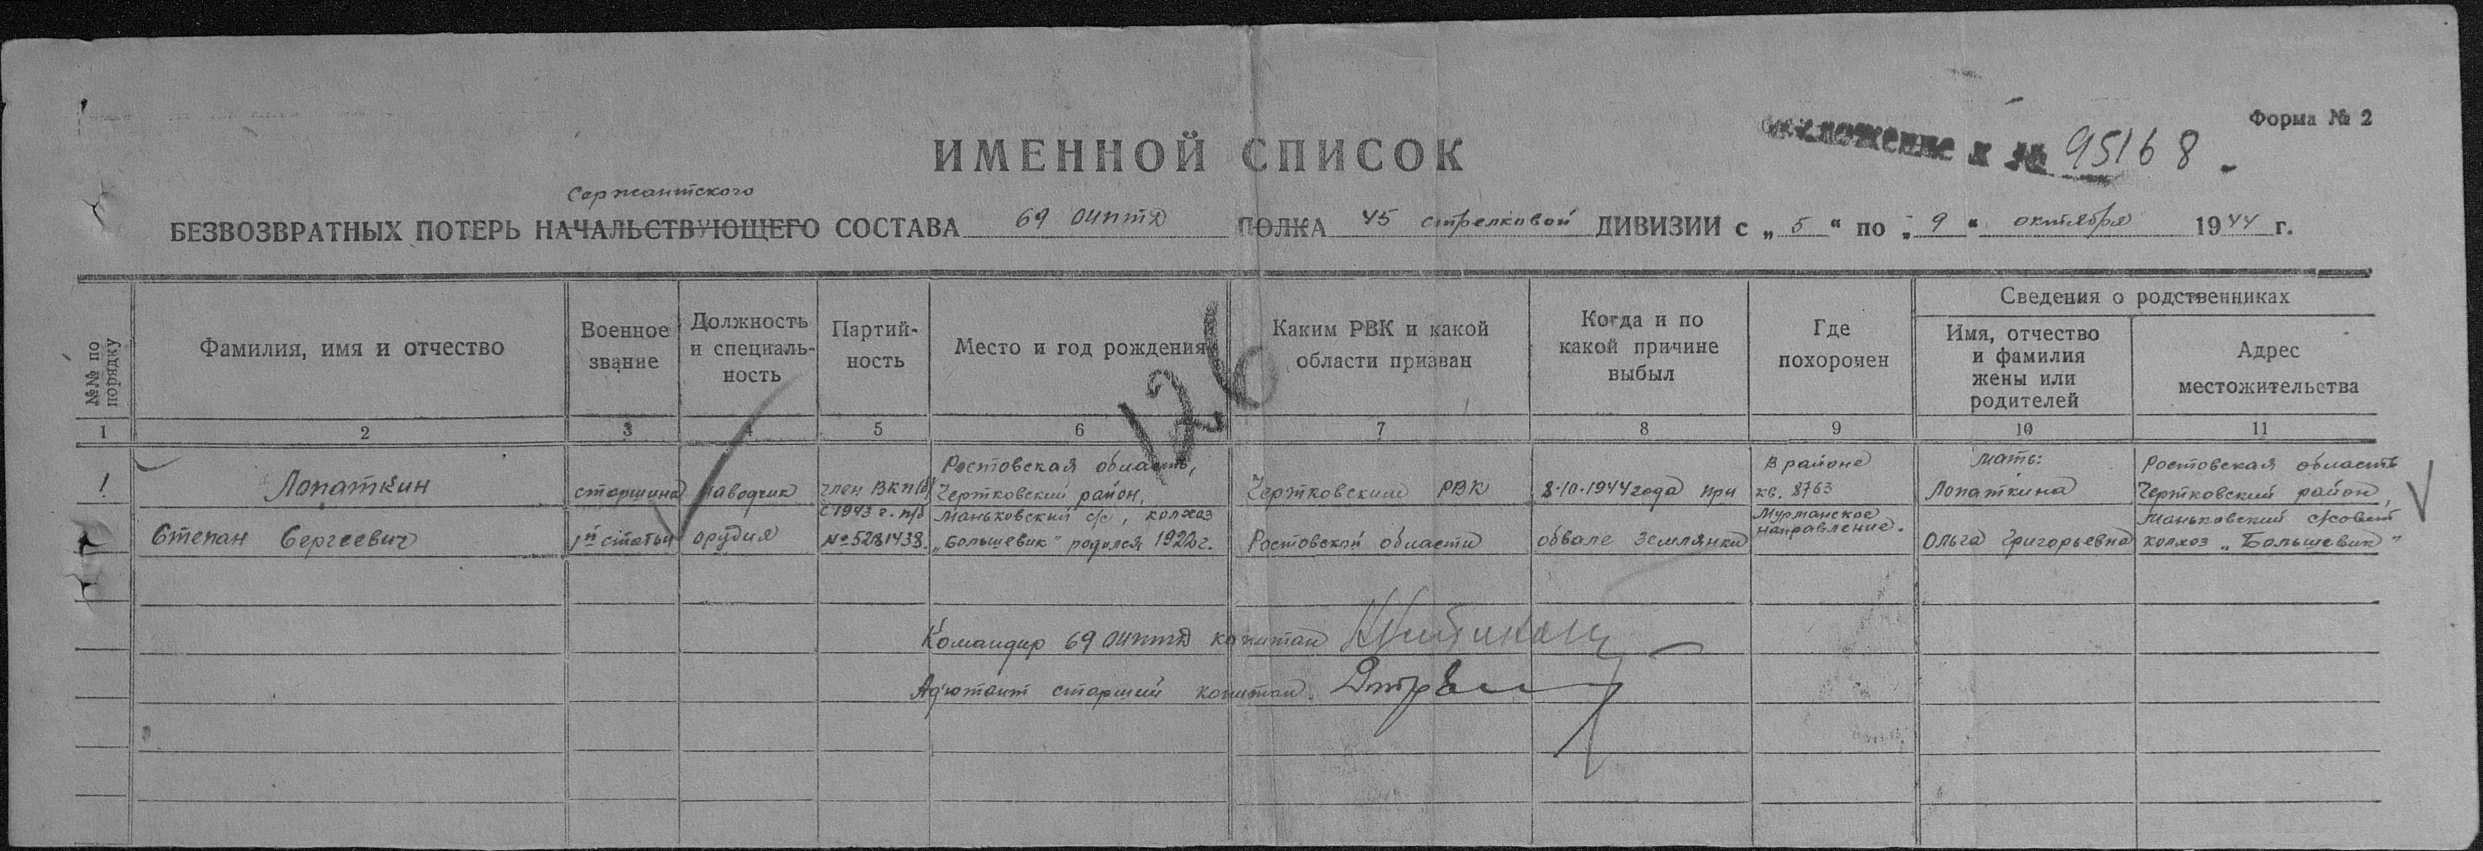 Форма № 2
к № 95168
ИМЕННОЙ СПИСОК
Сержантского
БЕЗВОЗВРАТНЫХ ПОТЕРЬ НАЧАЛЬСТВУЮЩЕГО СОСТАВА 69 оиптд ПОЛКА 45 стрелковой ДИВИЗИИ с „ 5 “ по „ 9 “ октября 1944 г.
№№ по порядку
Фамилия, имя и отчество
Военное звание
Должность и специаль-
ность
Партий-
ность
Место и год рождения
126
Каким РВК и какой
области призван
Когда и по
какой причине
выбыл
Где
похоронен
Сведения о родственниках
Имя, отчество
и фамилия
жены или
родителей
Адрес
местожительства
1 2 3 4 5 6 7 8 9 10 11
1
Лопаткин
Степан Сергеевич
старшина
1й статьи
наводчик
орудия
член ВКП(б)
с 1943 г. п/б
№ 5281438.
Ростовская область,
Чертковский район,
Маньковский с/с, колхоз
„Большевик" родился 1922г.
Чертковским РВК
Ростовской области
8.10.1944 года при
обвале землянки
В районе
кв. 8763
Мурманское
направление.
Мать:
Лопаткина
Ольга Григорьевна
Ростовская область
Чертковский район,
Маньковский с/совет
колхоз „Большевик"
Командир 69 оиптд капитан
Адъютант старший капитан